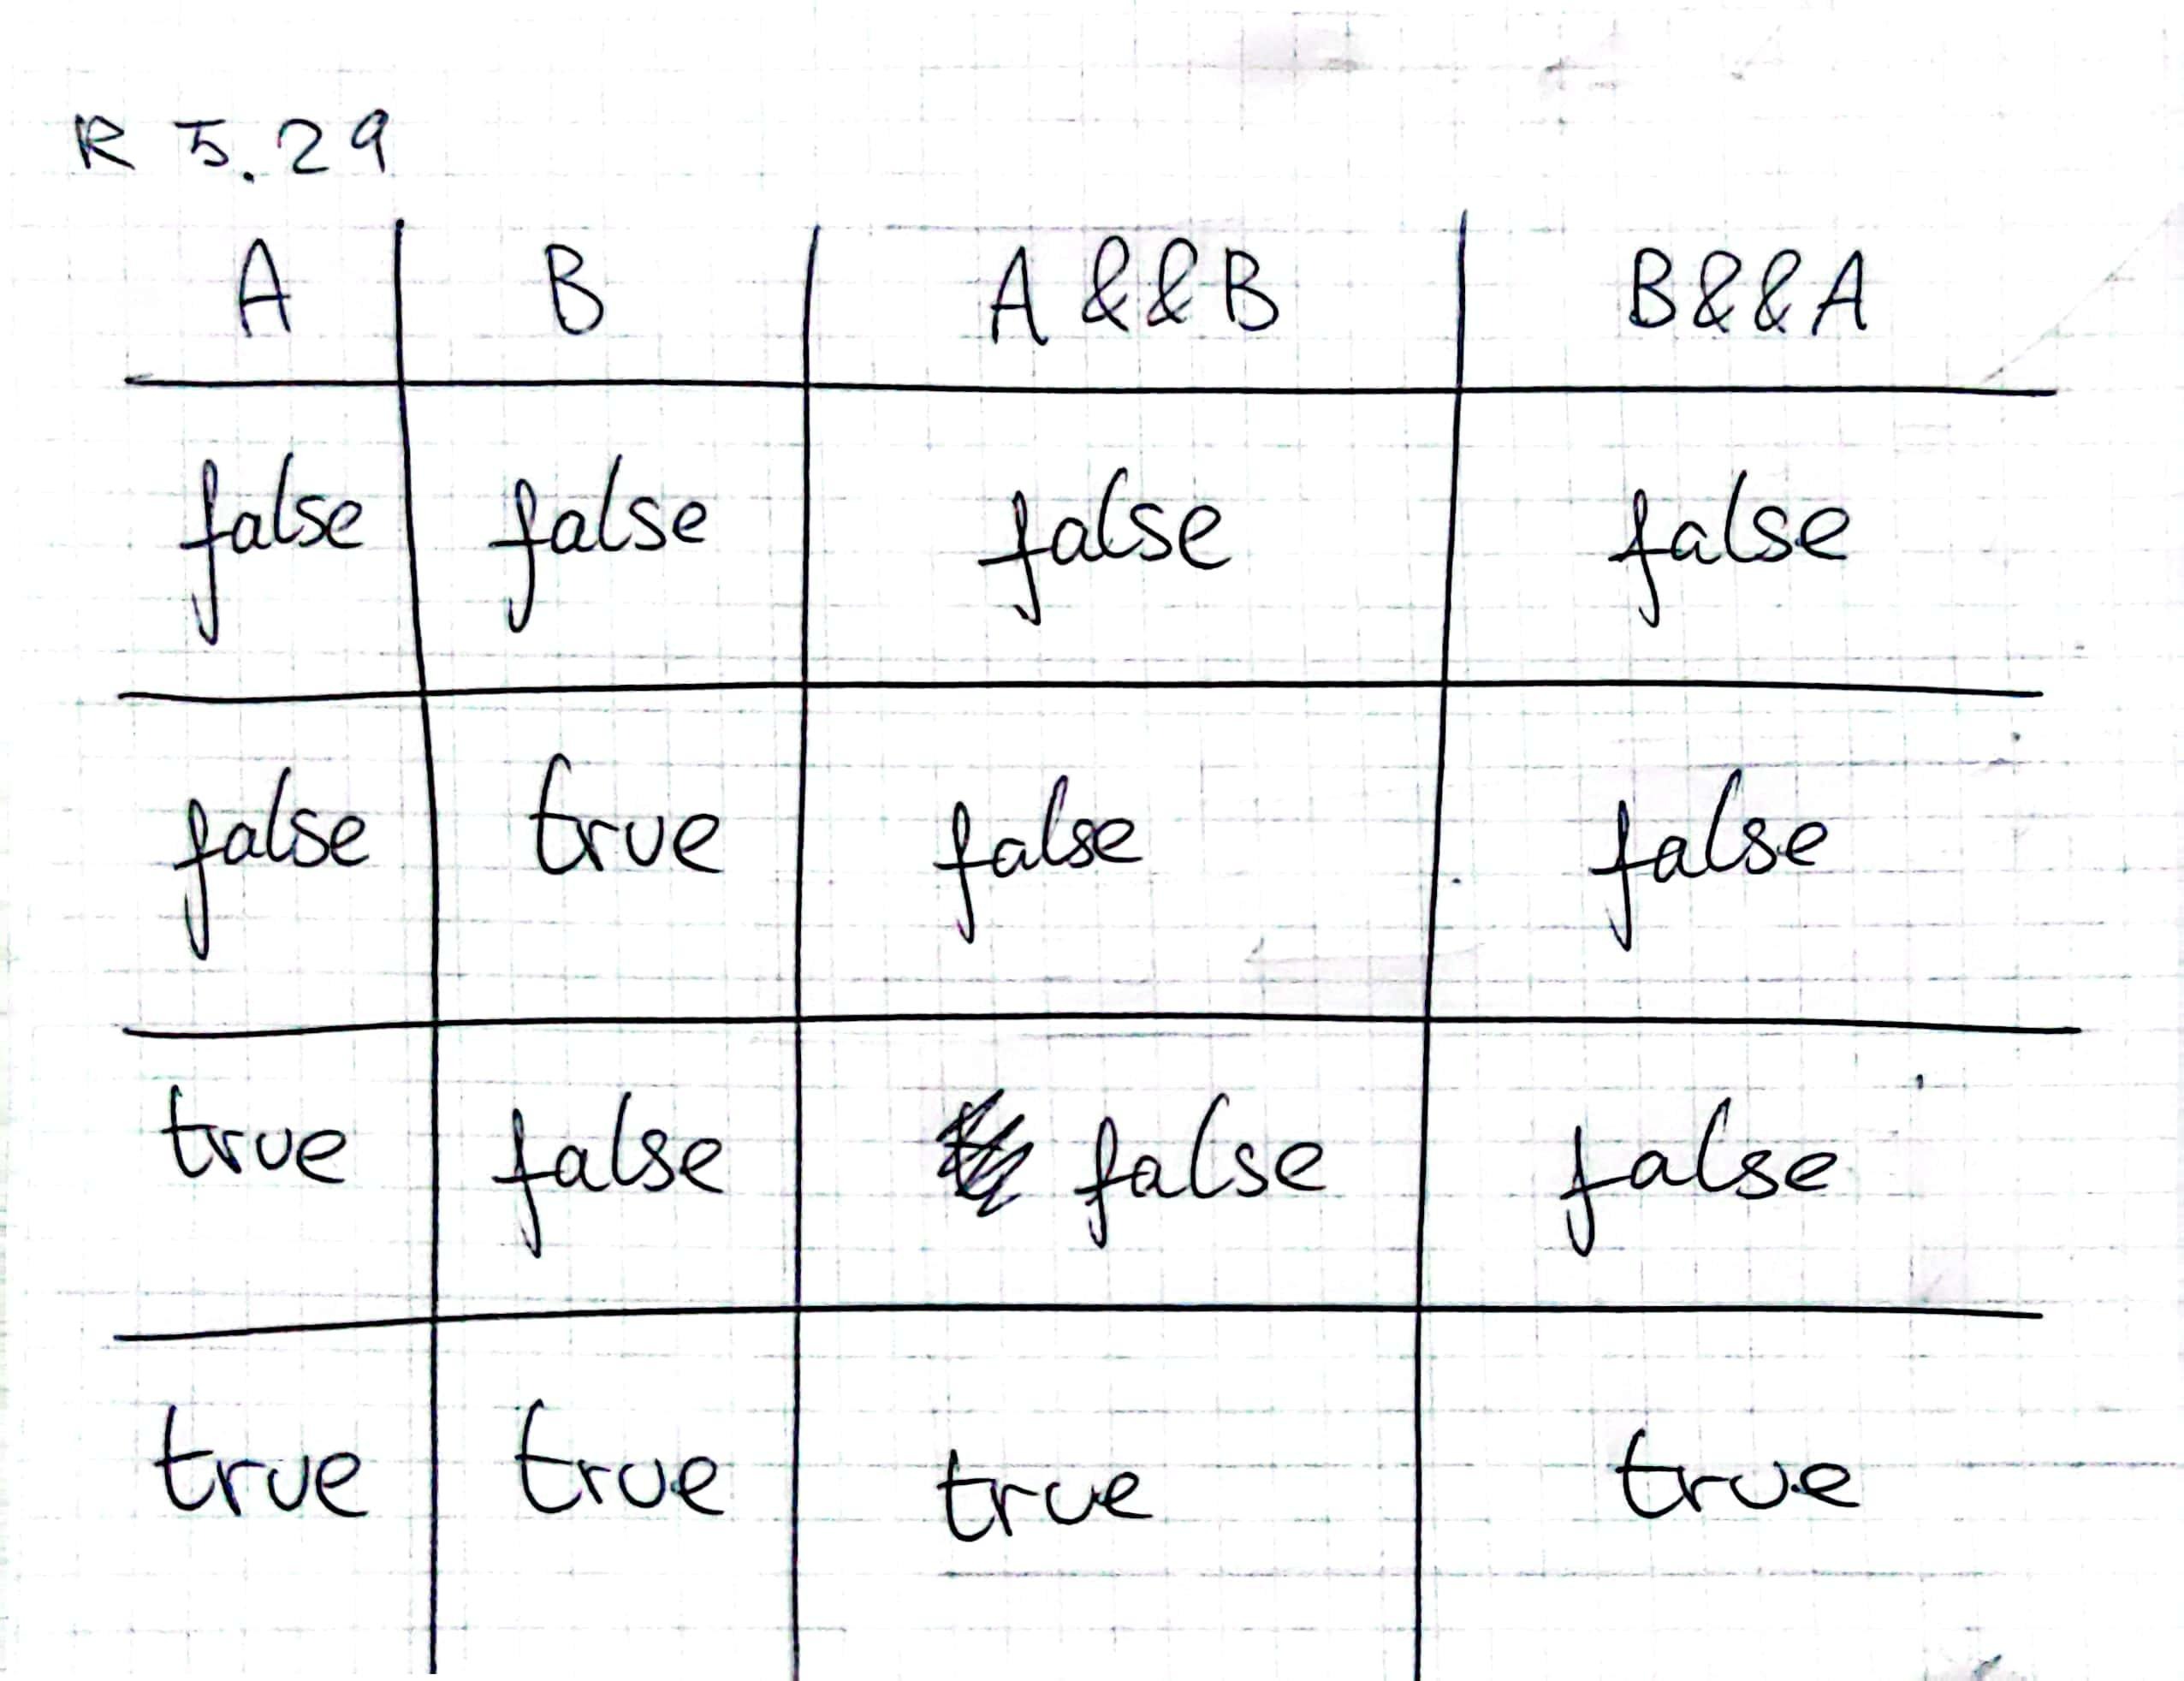 R 5.29
A B A && B B && A
false false false false
false true false false
true false false false
true true true true